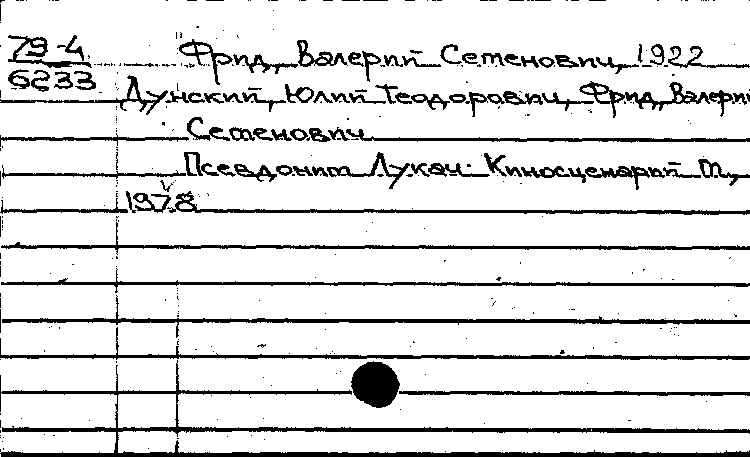 79-4
6233
Фрид, Валерий Семенович, 1922
Дунский, Юлий Теодорович, Фрид, Валерий
Семенович
Псевдоним Лукач. Киносценарий М.,
1978